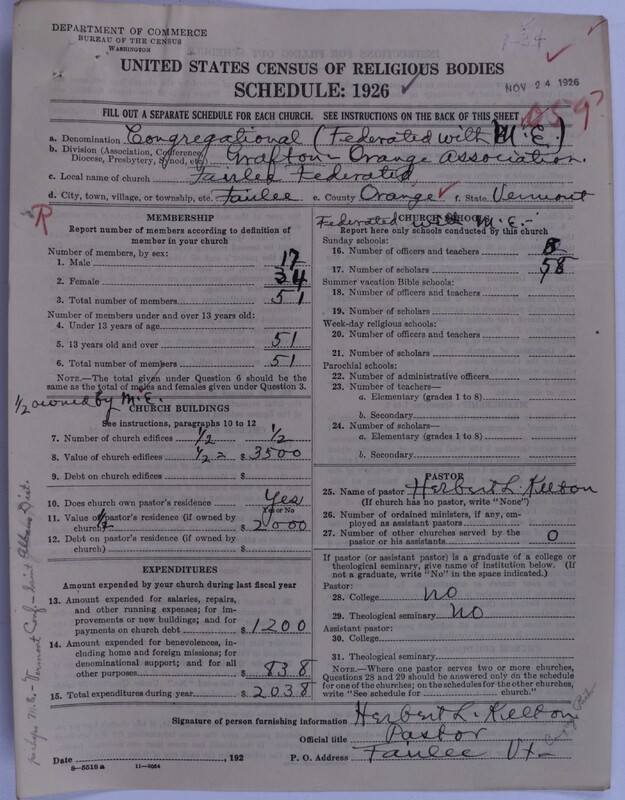 DEPARTMENT OF COMMERCE
BUREAU OF THE CENSUS
WASHINGTON
1-34
UNITED STATES CENSUS OF RELIGIOUS BODIES
SCHEDULE: 1926
NOV 24 1926
FILL OUT A SEPARATE SCHEDULE FOR EACH CHURCH. SEE INSTRUCTIONS ON THE BACK OF THIS SHEET
a. Denomination Congregational (Federated with M.E.)
b. Division (Association, Conference, Diocese, Presbytery, Synod, etc.) Grafton-Orange Association.
c. Local name of church Fairlee Federated
d. City, town, village, or township, etc. Fairlee e. County Orange f. State Vermont
MEMBERSHIP
Report number of members according to definition of
member in your church
Number of members, by sex:
1. Male 17
2. Female 34
3. Total number of members 51
Number of members under and over 13 years old:
4. Under 13 years of age
5. 13 years old and over 51
6. Total number of members 51
NOTE.—The total given under Question 6 should be the
same as the total of males and females given under Question 3.
1/2 owned by M.E.
CHURCH BUILDINGS
See instructions, paragraphs 10 to 12
7. Number of church edifices 1/2 1/2
8. Value of church edifices 1/2 = $ 3500
9. Debt on church edifices $
10. Does church own pastor's residence Yes
Yes or No
11. Value of 1/2 pastor's residence (if owned by
church) $ 2000
12. Debt on pastor's residence (if owned by
church) $
EXPENDITURES
Amount expended by your church during last fiscal year
13. Amount expended for salaries, repairs,
and other running expenses; for im-
provements or new buildings; and for
payments on church debt $ 1200
14. Amount expended for benevolences,
including home and foreign missions; for
denominational support; and for all
other purposes $ 838
15. Total expenditures during year $ 2038
CHURCH SCHOOLS
Federated with M.E.-
Report here only schools conducted by this church
Sunday schools:
16. Number of officers and teachers 8
17. Number of scholars 58
Summer vacation Bible schools:
18. Number of officers and teachers
19. Number of scholars
Week-day religious schools:
20. Number of officers and teachers
21. Number of scholars
Parochial schools:
22. Number of administrative officers
23. Number of teachers—
a. Elementary (grades 1 to 8)
b. Secondary
24. Number of scholars—
a. Elementary (grades 1 to 8)
b. Secondary
PASTOR
25. Name of pastor Herbert L. Kelton
(If church has no pastor, write "None")
26. Number of ordained ministers, if any, em-
ployed as assistant pastors
27. Number of other churches served by the
pastor or his assistants 0
If pastor (or assistant pastor) is a graduate of a college or
theological seminary, give name of institution below. (If
not a graduate, write "No" in the space indicated.)
Pastor:
28. College no
29. Theological seminary no
Assistant pastor:
30. College
31. Theological seminary
NOTE.—Where one pastor serves two or more churches,
Questions 28 and 29 should be answered only on the schedule
for one of the churches; on the schedules for the other churches,
write "See schedule for church."
Signature of person furnishing information Herbert L. Kelton
Official title Pastor
Date , 192 P. O. Address Fairlee Vt-
8—5516 a 11—9064